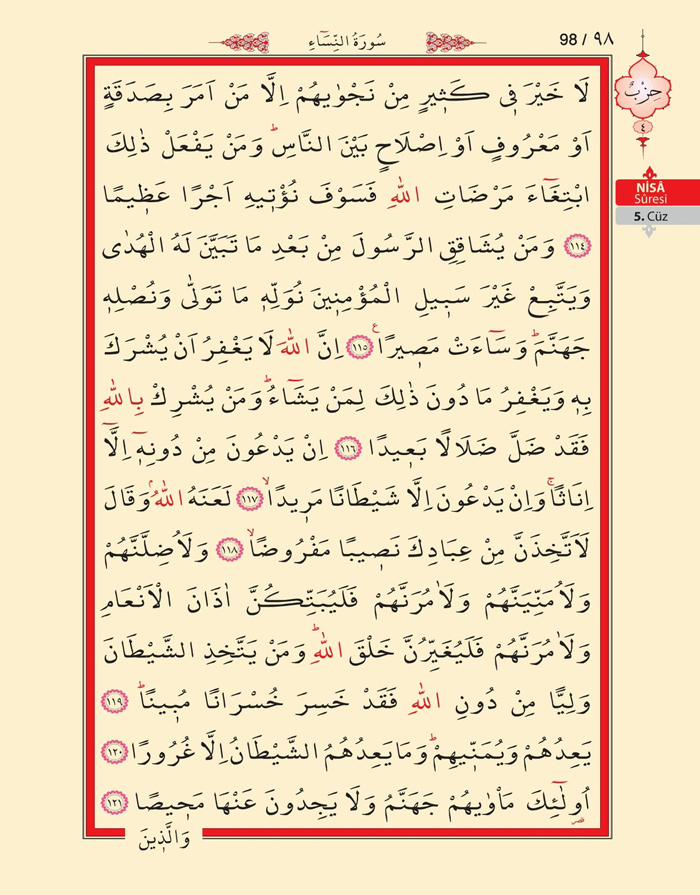 98 / ٩٨
سُورَةُ النِّسَاءِ
حِزْبٌ
٤
NİSÂ
Sûresi
5. Cüz
لَا خَيْرَ ف۪ي كَث۪يرٍ مِنْ نَجْوٰيهُمْ اِلَّا مَنْ اَمَرَ بِصَدَقَةٍ
اَوْ مَعْرُوفٍ اَوْ اِصْلَاحٍ بَيْنَ النَّاسِۜ وَمَنْ يَفْعَلْ ذٰلِكَ
ابْتِغَٓاءَ مَرْضَاتِ اللّٰهِ فَسَوْفَ نُؤْت۪يهِ اَجْرًا عَظ۪يمًا
﴿١١٤﴾ وَمَنْ يُشَاقِقِ الرَّسُولَ مِنْ بَعْدِ مَا تَبَيَّنَ لَهُ الْهُدٰى
وَيَتَّبِعْ غَيْرَ سَب۪يلِ الْمُؤْمِن۪ينَ نُوَلِّه۪ مَا تَوَلّٰى وَنُصْلِه۪
جَهَنَّمَۜ وَسَٓاءَتْ مَص۪يرًا۟ ﴿١١٥﴾ اِنَّ اللّٰهَ لَا يَغْفِرُ اَنْ يُشْرَكَ
بِه۪ وَيَغْفِرُ مَا دُونَ ذٰلِكَ لِمَنْ يَشَٓاءُۜ وَمَنْ يُشْرِكْ بِاللّٰهِ
فَقَدْ ضَلَّ ضَلَالًا بَع۪يدًا ﴿١١٦﴾ اِنْ يَدْعُونَ مِنْ دُونِه۪ٓ اِلَّٓا
اِنَاثًاۚ وَاِنْ يَدْعُونَ اِلَّا شَيْطَانًا مَر۪يدًاۙ ﴿١١٧﴾ لَعَنَهُ اللّٰهُۢ وَقَالَ
لَاَتَّخِذَنَّ مِنْ عِبَادِكَ نَص۪يبًا مَفْرُوضًاۙ ﴿١١٨﴾ وَلَاُضِلَّنَّهُمْ
وَلَاُمَنِّيَنَّهُمْ وَلَاٰمُرَنَّهُمْ فَلَيُبَتِّكُنَّ اٰذَانَ الْاَنْعَامِ
وَلَاٰمُرَنَّهُمْ فَلَيُغَيِّرُنَّ خَلْقَ اللّٰهِۜ وَمَنْ يَتَّخِذِ الشَّيْطَانَ
وَلِيًّا مِنْ دُونِ اللّٰهِ فَقَدْ خَسِرَ خُسْرَانًا مُب۪ينًاۜ ﴿١١٩﴾
يَعِدُهُمْ وَيُمَنّ۪يهِمْۜ وَمَا يَعِدُهُمُ الشَّيْطَانُ اِلَّا غُرُورًا ﴿١٢٠﴾
اُو۬لٰٓئِكَ مَاْوٰيهُمْ جَهَنَّمُ وَلَا يَجِدُونَ عَنْهَا مَح۪يصًا ﴿١٢١﴾
قصر
وَالَّذ۪ينَ